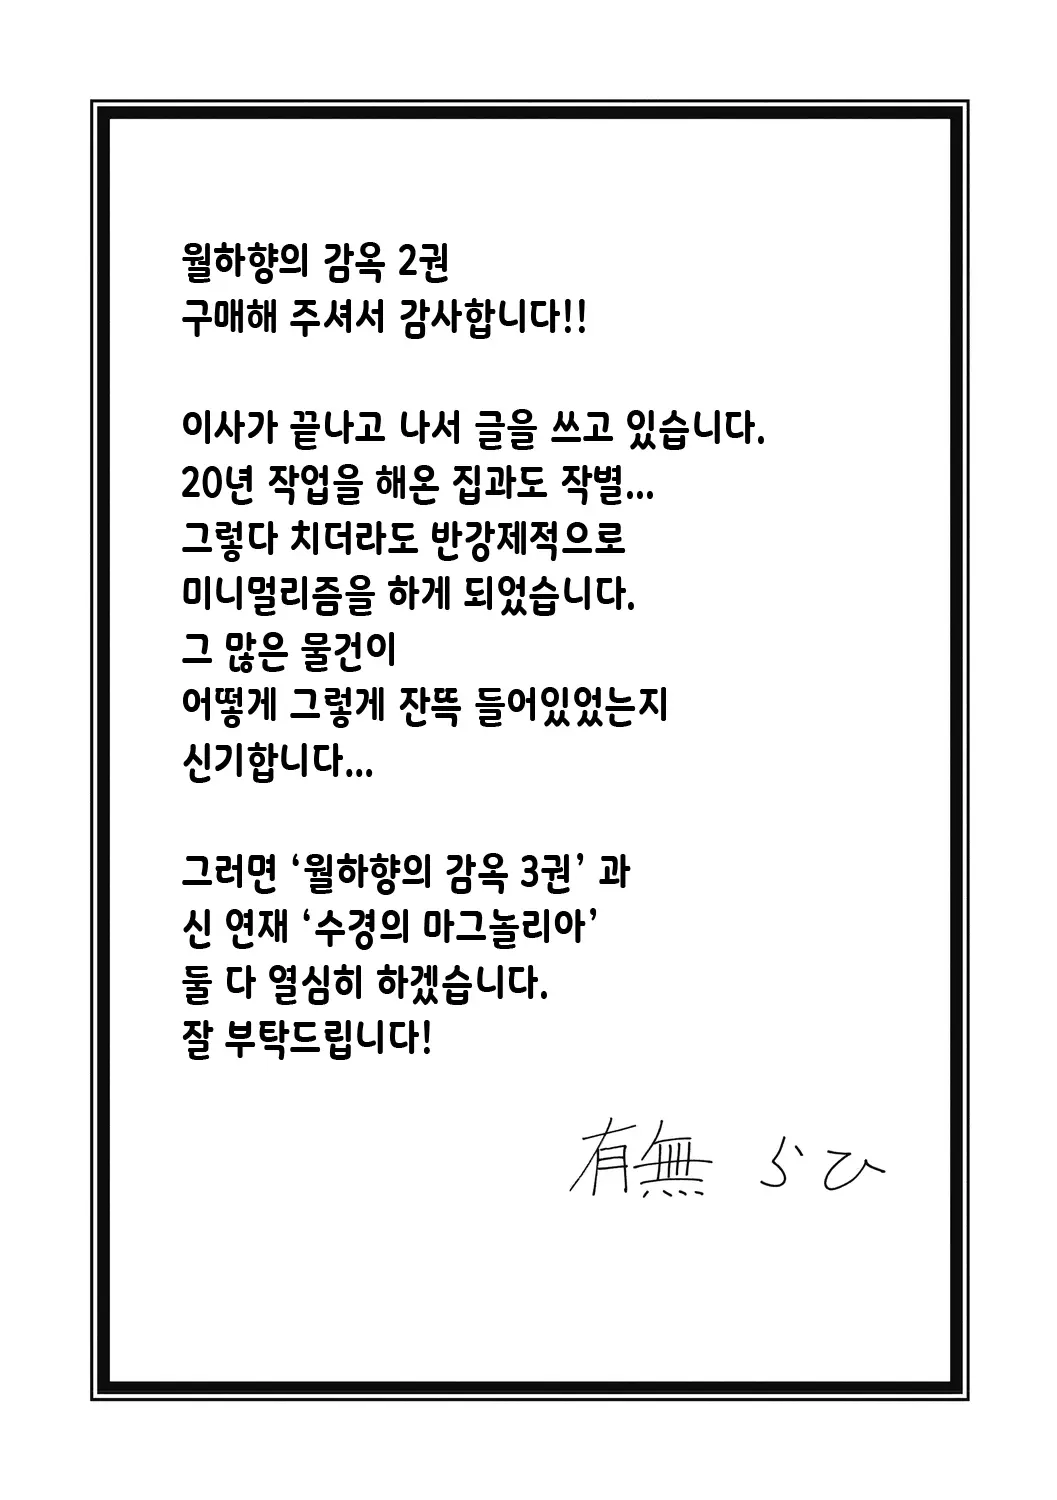 월하향의 감옥 2권
구매해 주셔서 감사합니다!!
이사가 끝나고 나서 글을 쓰고 있습니다.
20년 작업을 해온 집과도 작별...
그렇다 치더라도 반강제적으로
미니멀리즘을 하게 되었습니다.
그 많은 물건이
어떻게 그렇게 잔뜩 들어있었는지
신기합니다...
그러면 ‘월하향의 감옥 3권’ 과
신 연재 ‘수경의 마그놀리아’
둘 다 열심히 하겠습니다.
잘 부탁드립니다!
有無 らひ